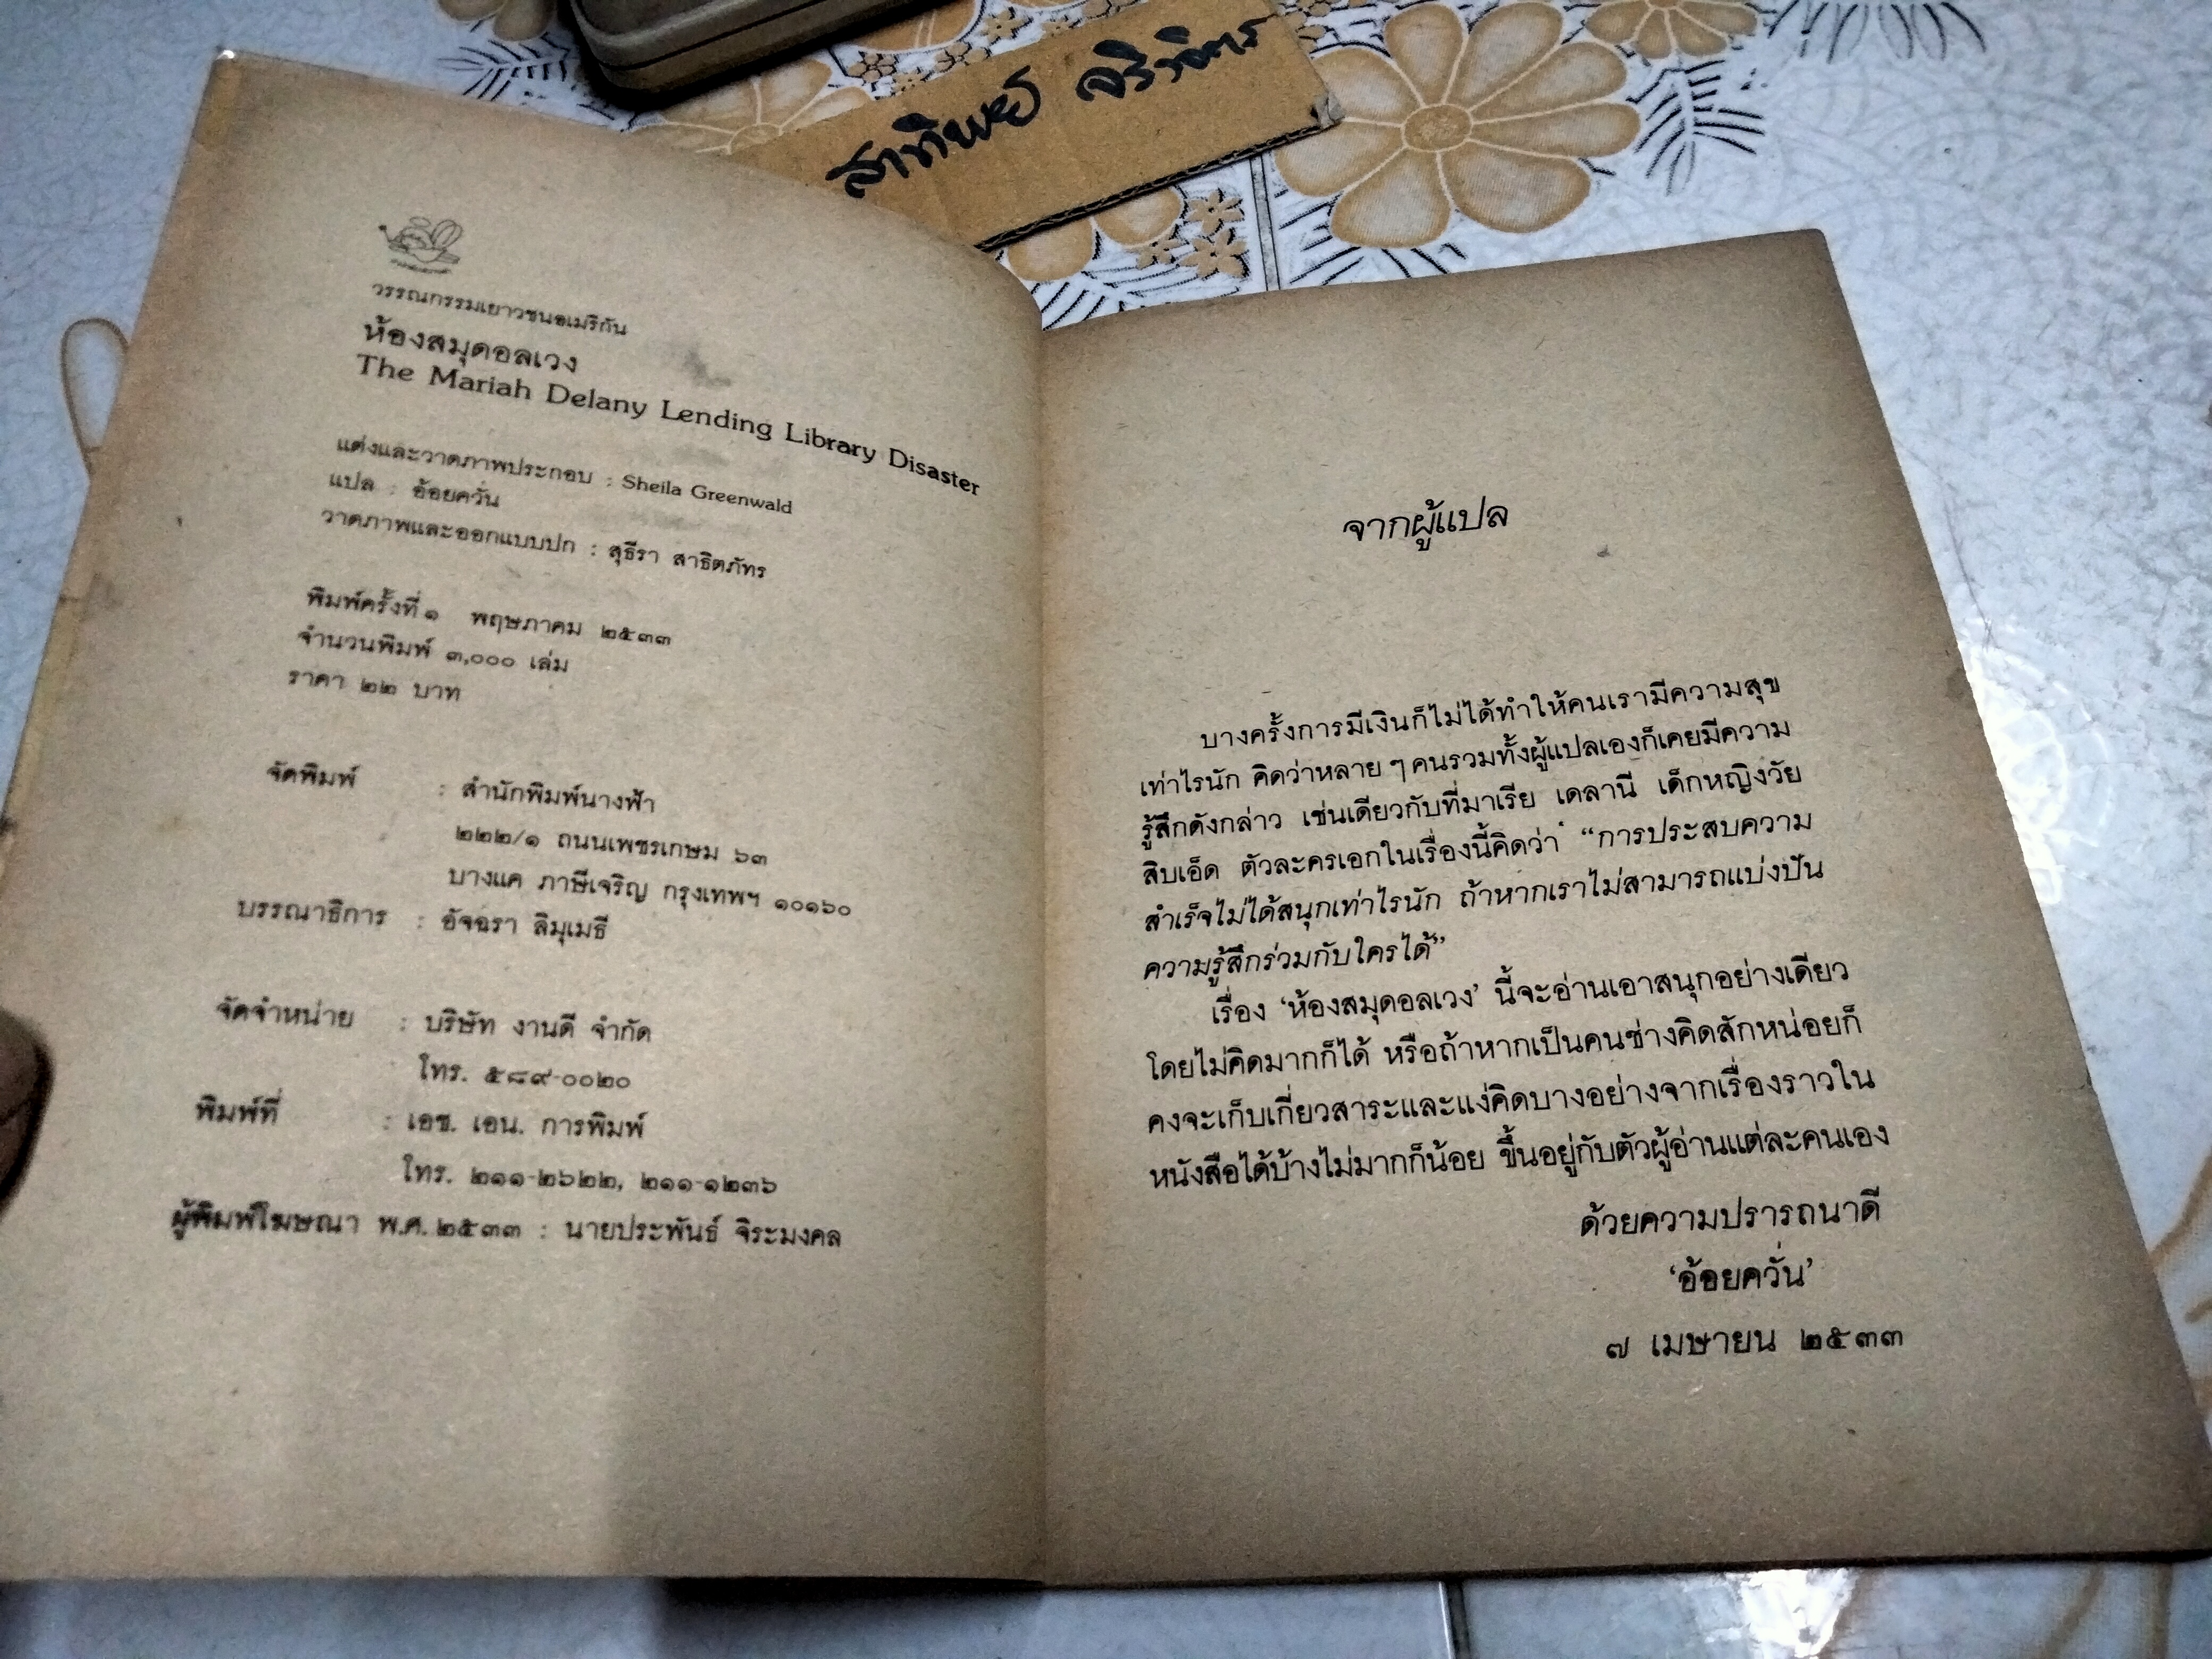 สาทิพย์
วรรณกรรมเยาวชนอเมริกัน
ห้องสมุดอลเวง
The Mariah Delany Lending Library Disaster
แต่งและวาดภาพประกอบ : Sheila Greenwald
แปล : อ้อยควั่น
วาดภาพและออกแบบปก : สุธีรา สาธิตภัทร
พิมพ์ครั้งที่ ๑ พฤษภาคม ๒๕๓๓
จำนวนพิมพ์ ๓,๐๐๐ เล่ม
ราคา ๒๒ บาท
จัดพิมพ์ : สำนักพิมพ์นางฟ้า
๒๒๒/๑ ถนนเพชรเกษม ๖๓
บางแค ภาษีเจริญ กรุงเทพฯ ๑๐๑๖๐
บรรณาธิการ : อัจฉรา ลิมุเมธี
จัดจำหน่าย : บริษัท งานดี จำกัด
โทร. ๕๘๙-๐๐๒๐
พิมพ์ที่ : เอช. เอน. การพิมพ์
โทร. ๒๑๑-๒๖๒๒, ๒๑๑-๑๒๓๖
ผู้พิมพ์โฆษณา พ.ศ. ๒๕๓๓ : นายประพันธ์ จิระมงคล
จากผู้แปล
บางครั้งการมีเงินก็ไม่ได้ทำให้คนเรามีความสุข
เท่าไรนัก คิดว่าหลาย ๆ คนรวมทั้งผู้แปลเองก็เคยมีความ
รู้สึกดังกล่าว เช่นเดียวกับที่มาเรีย เดลานี เด็กหญิงวัย
สิบเอ็ด ตัวละครเอกในเรื่องนี้คิดว่า “การประสบความ
สำเร็จไม่ได้สนุกเท่าไรนัก ถ้าหากเราไม่สามารถแบ่งปัน
ความรู้สึกร่วมกับใครได้”
เรื่อง ‘ห้องสมุดอลเวง’ นี้จะอ่านเอาสนุกอย่างเดียว
โดยไม่คิดมากก็ได้ หรือถ้าหากเป็นคนช่างคิดสักหน่อยก็
คงจะเก็บเกี่ยวสาระและแง่คิดบางอย่างจากเรื่องราวใน
หนังสือได้บ้างไม่มากก็น้อย ขึ้นอยู่กับตัวผู้อ่านแต่ละคนเอง
ด้วยความปรารถนาดี
‘อ้อยควั่น’
๗ เมษายน ๒๕๓๓